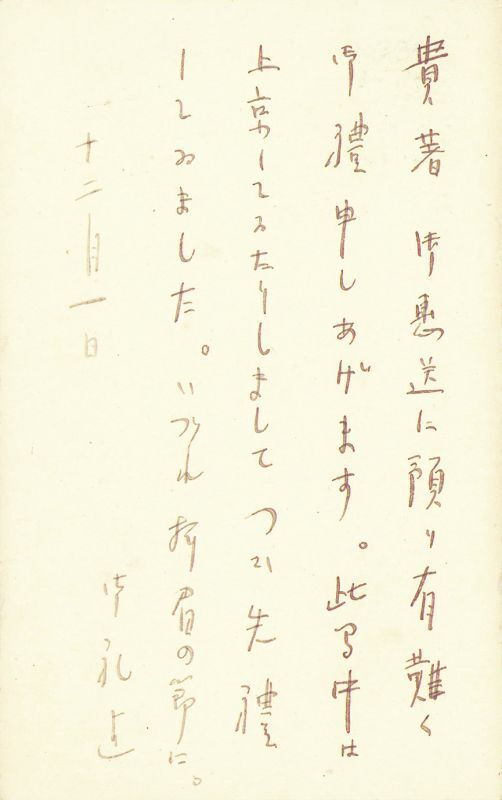 貴著 御惠送に預り有難く
御禮申しあげます。此間中は
上京してゐたりしまして つひ先禮
してゐました。いづれ 拝眉の節に。
御礼迄
十二月一日